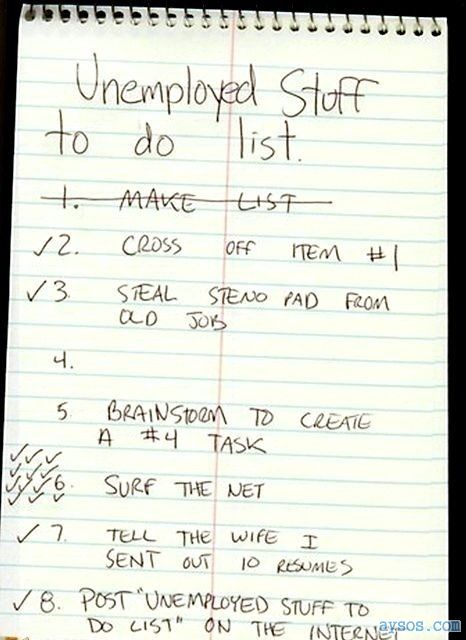 Unemployed Stuff
to do list.
1. MAKE LIST
✓2. CROSS OFF ITEM #1
✓3. STEAL STENO PAD FROM
OLD JOB
4.
5. BRAINSTORM TO CREATE
A #4 TASK
6. SURF THE NET
✓7. TELL THE WIFE I
SENT OUT 10 RESUMES
✓8. POST "UNEMPLOYED STUFF TO
DO LIST" ON THE INTERNET
aysos.com